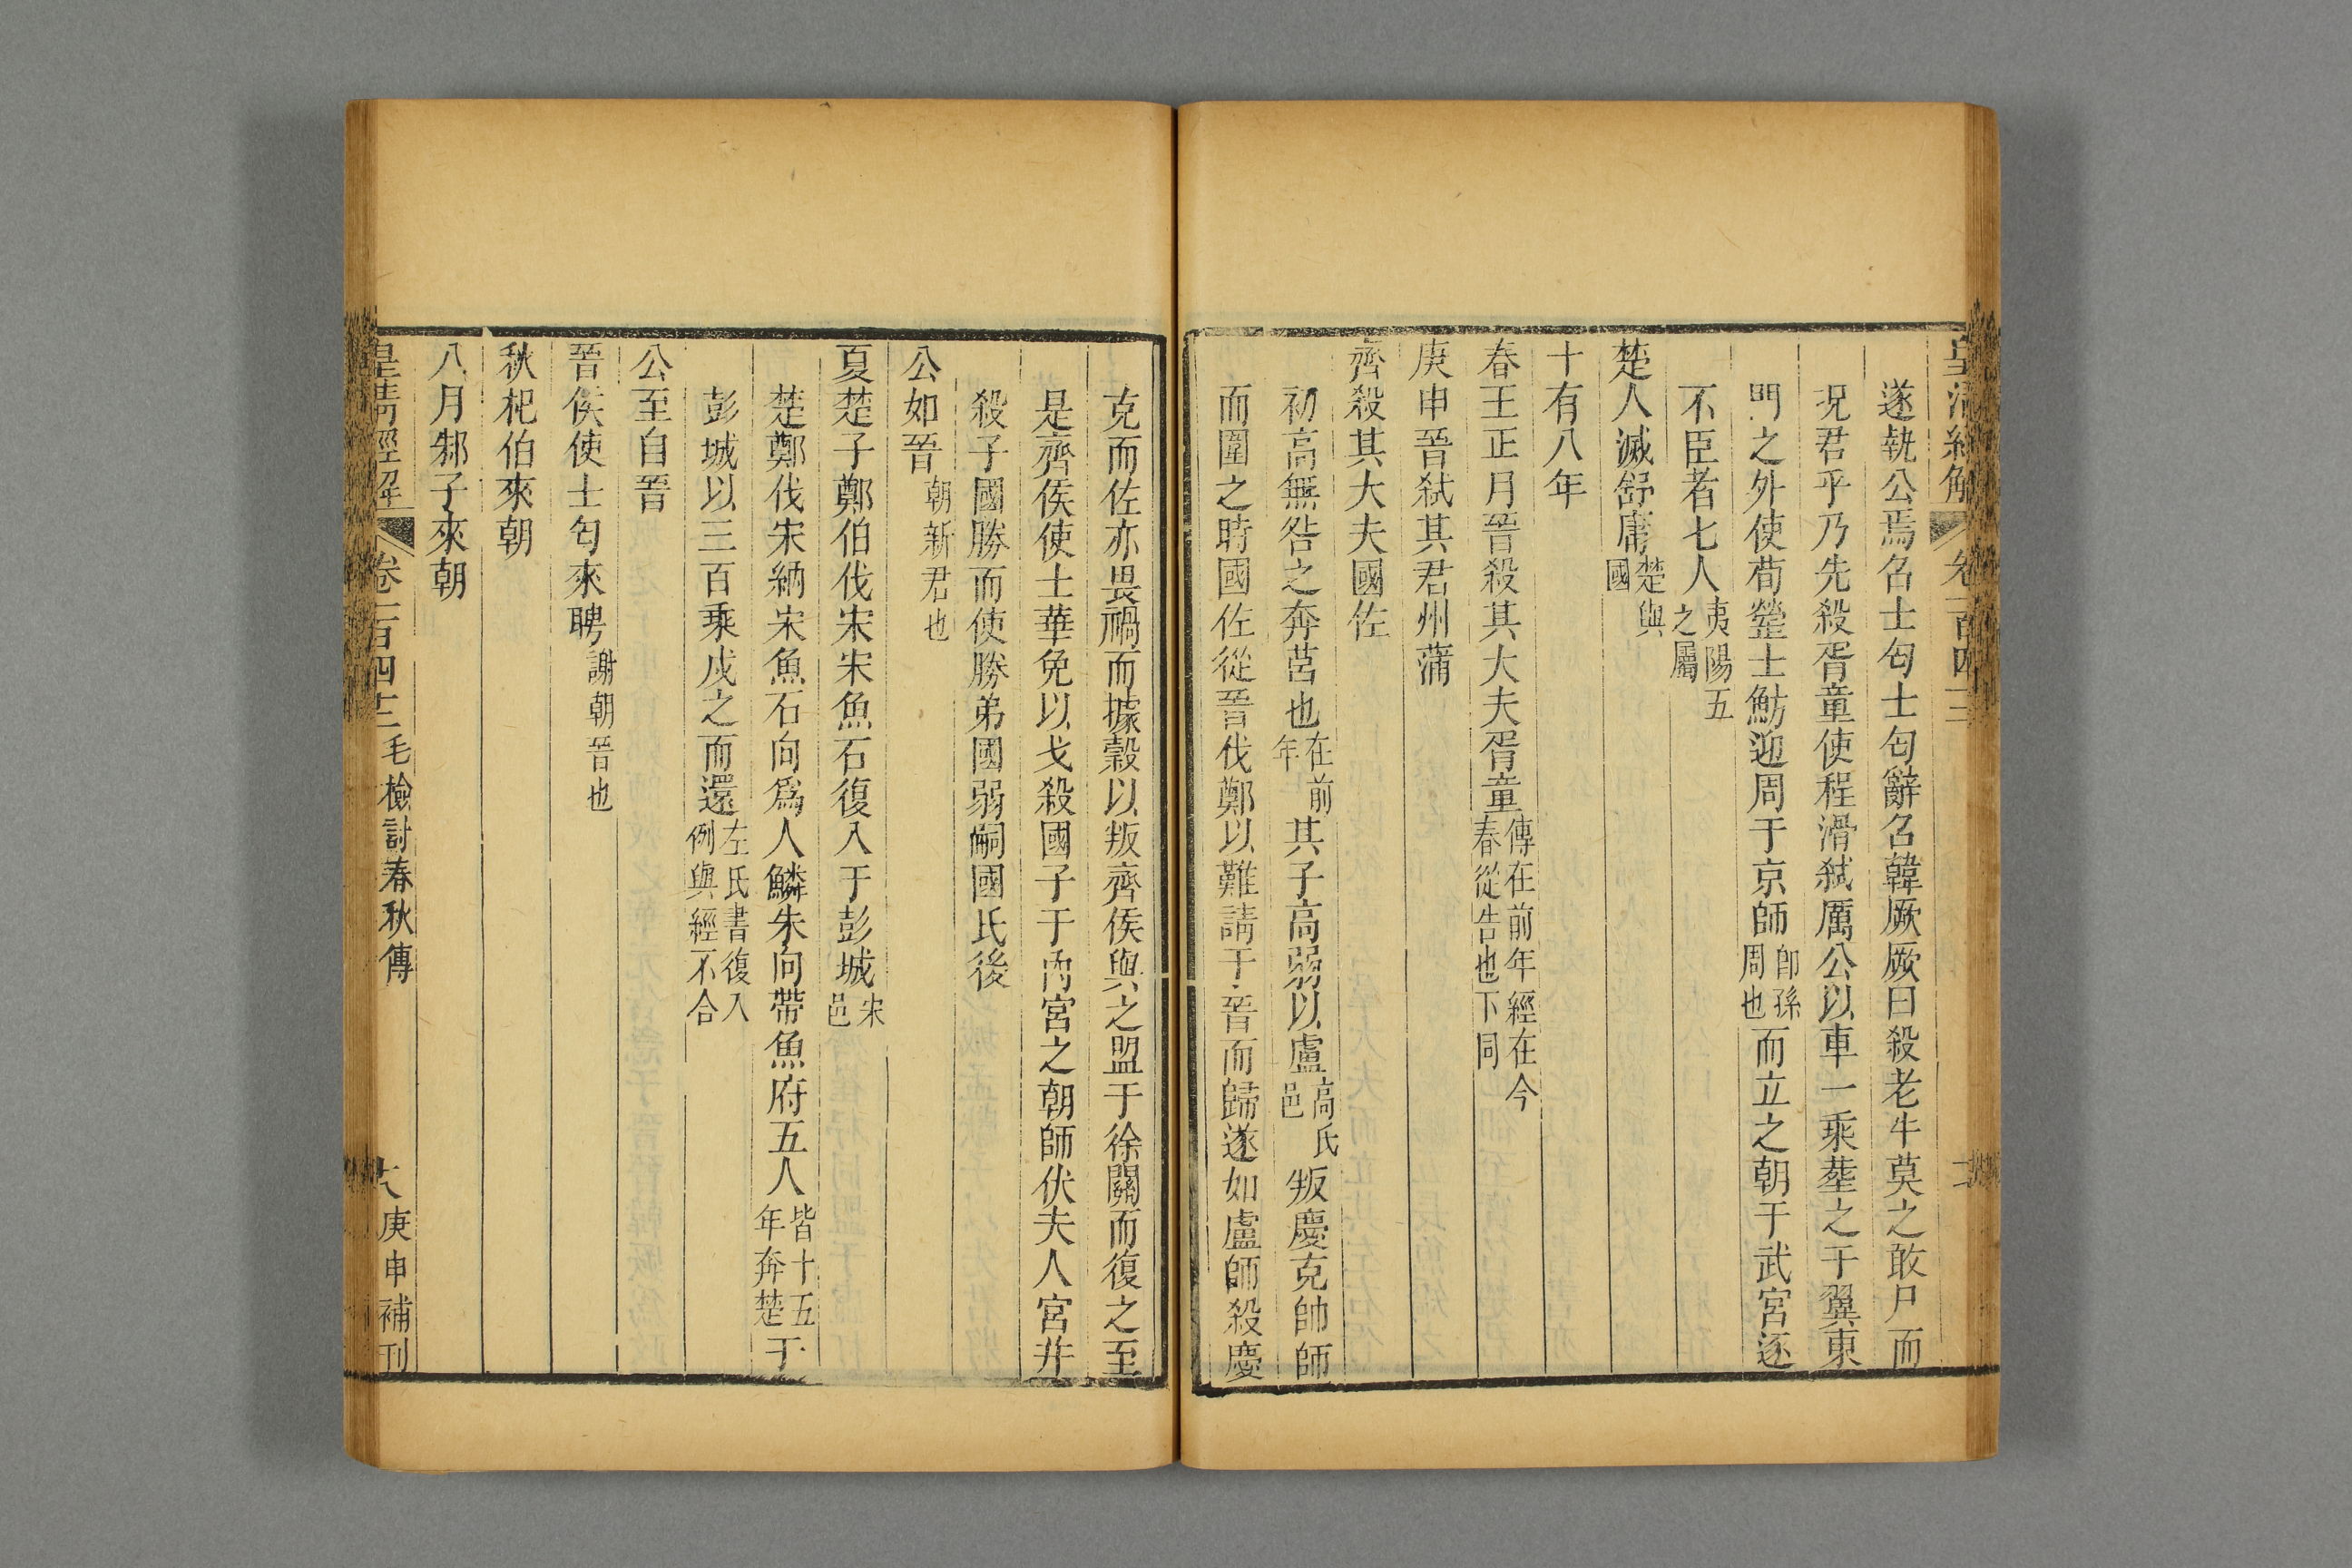 遂執公焉召士匄士匄辭召韓厥厥曰殺老牛莫之敢尸而
況君乎乃先殺胥童使程滑弑厲公以車一乘塟之于翼東
門之外使荀罃士魴迎周于京師卽孫周也而立之朝于武宮逐
不臣者七人夷陽五之屬
楚人滅舒庸楚與國
十有八年
春王正月晉殺其大夫胥童傳在前年經在今春從告也下同
庚申晉弑其君州蒲
齊殺其大夫國佐
初高無咎之奔莒也在前年其子高弱以盧高氏邑叛慶克帥師
而圍之時國佐從晉伐鄭以難請于晉而歸遂如盧師殺慶
克而佐亦畏禍而據穀以叛齊侯與之盟于徐關而復之至
是齊侯使士華免以戈殺國子于內宮之朝師伏夫人宮幷
殺子國勝而使勝弟國弱嗣國氏後
公如晉朝新君也
夏楚子鄭伯伐宋宋魚石復入于彭城宋邑
楚鄭伐宋納宋魚石向爲人鱗朱向帶魚府五人皆十五年奔楚于
彭城以三百乘戍之而還左氏書復入例與經不合
公至自晉
晉侯使士匄來聘謝朝晉也
秋杞伯來朝
八月邾子來朝
皇清經解 卷一百四十三 毛檢討春秋傳 庚申補刊